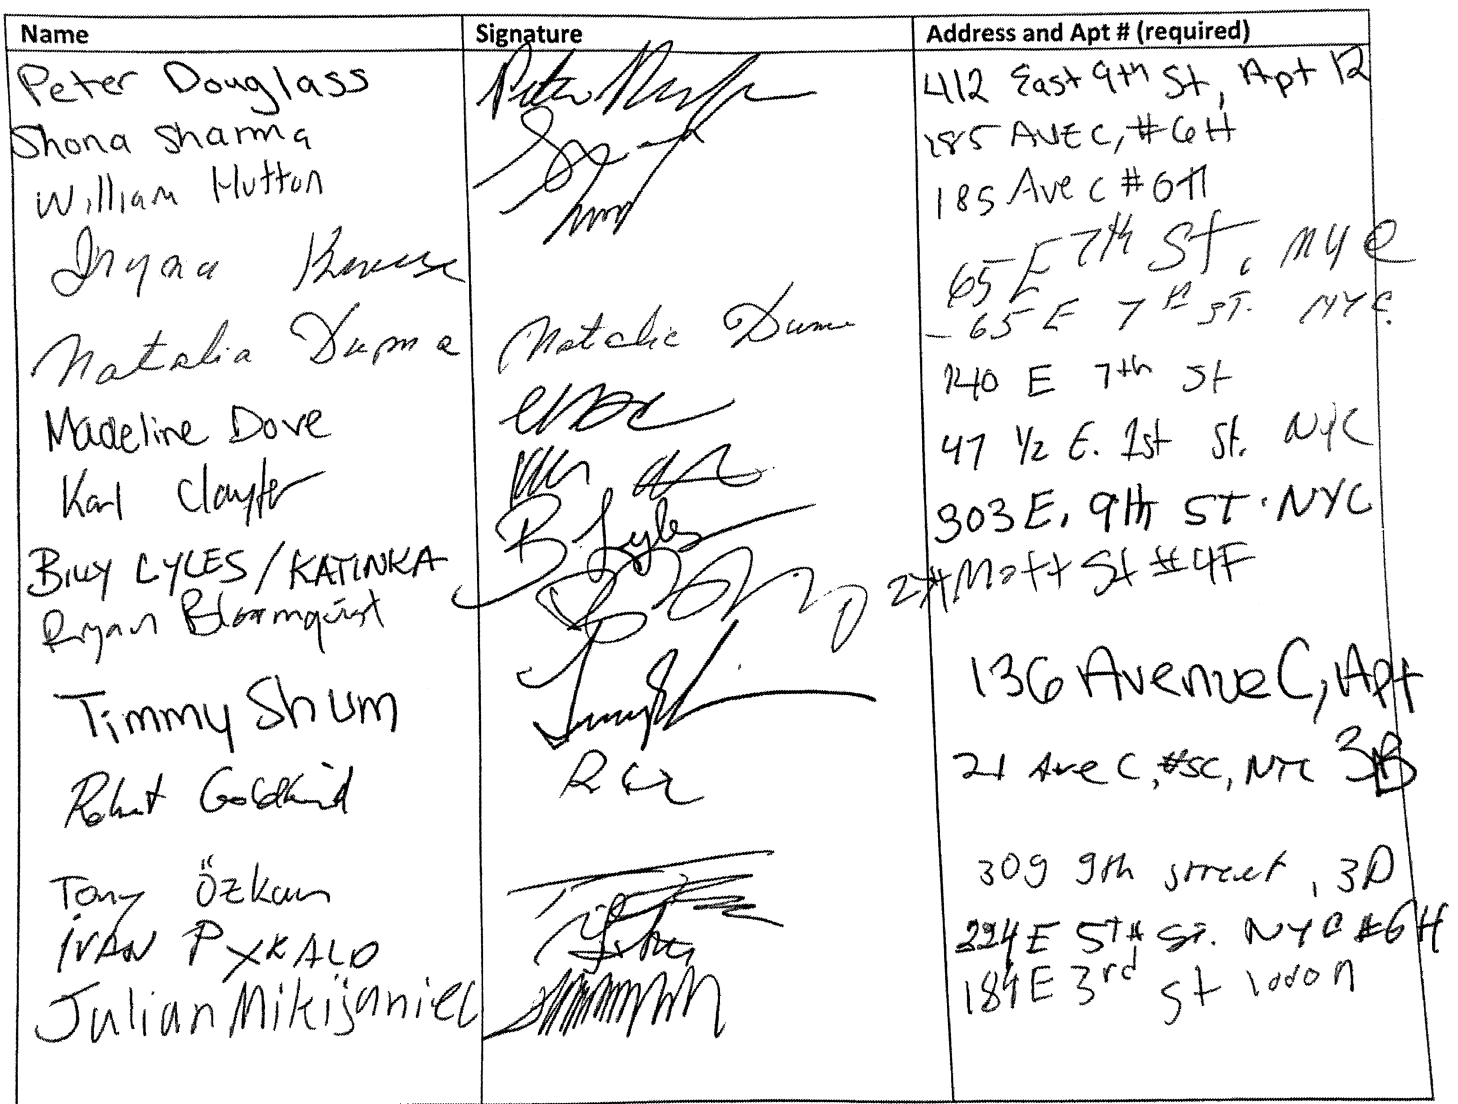 Name Signature Address and Apt # (required)
Peter Douglass 412 East 9th St, Apt 12
Shona Sharma 185 AVE C, #6H
William Hutton 185 Ave C #6H
Iryna 65 E 7th St, NYC
Natalia Duma Natalie Duma 65 E 7th ST. NYC.
Madeline Dove 140 E 7th St
Karl Clayter 47 1/2 E. 1st St. NYC
BILLY LYLES / KATINKA B. Lyles 303 E. 9th ST. NYC
Ryan Bloomquist Mott St #4F
Timmy Shum 136 Avenue C, Apt 3B
Robert 21 Ave C, #5C, NYC
Tony Özkan 309 9th street, 3D
IVAN PYXKALO 224 E 5TH St. NYC #6H
Julian Mikijaniec 184 E 3rd St 10009